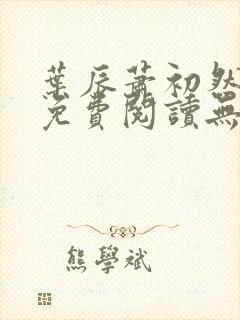 葉辰蕭初然
免費閱讀無
熊學斌